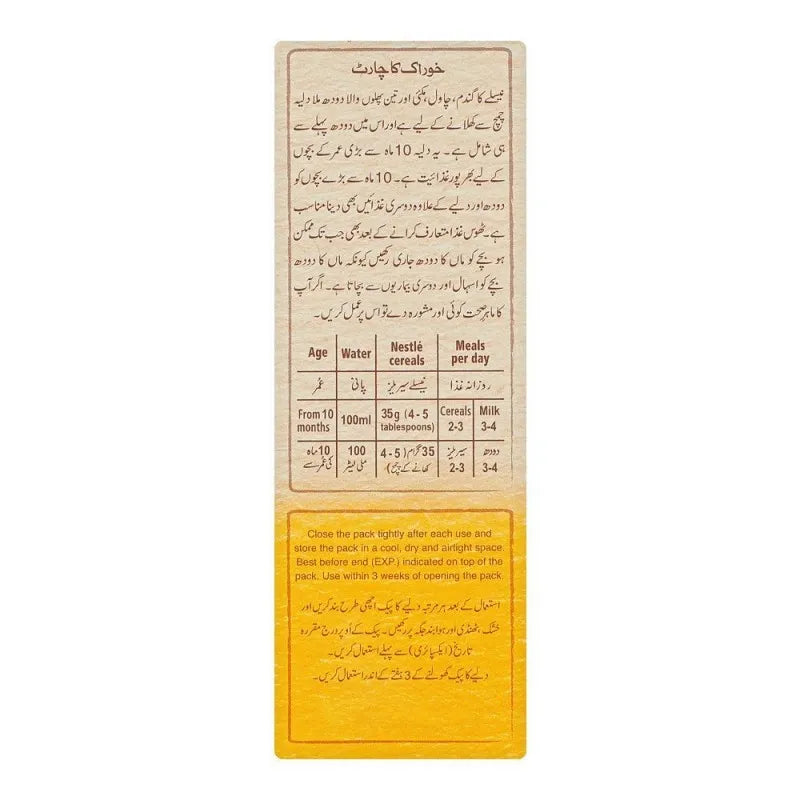 خوراک کا چارٹ
نیسلے کا گندم، چاول، مکئی اور تین پھلوں والا دودھ ملا دلیہ
چمچ سے کھلانے کے لیے ہے اور اس میں دودھ پہلے سے
ہی شامل ہے۔ یہ دلیہ 10 ماہ سے بڑی عمر کے بچوں
کے لیے بھرپور غذائیت ہے۔ 10 ماہ سے بڑے بچوں کو
دودھ اور دلیے کے علاوہ دوسری غذائیں بھی دینا مناسب
ہے۔ ٹھوس غذا متعارف کرانے کے بعد بھی جب تک ممکن
ہو بچے کو ماں کا دودھ جاری رکھیں کیونکہ ماں کا دودھ
بچے کو اسہال اور دوسری بیماریوں سے بچاتا ہے۔ اگر آپ
کا ماہرِ صحت کوئی اور مشورہ دے تو اس پر عمل کریں۔
Age Water Nestlé cereals Meals per day
عمر پانی نیسلے سیریلز روزانہ غذا
From 10 months 100ml 35g (4 - 5 tablespoons) Cereals 2-3 Milk 3-4
10 ماہ کی عمر سے 100 ملی لیٹر 35 گرام (4 - 5 کھانے کے چمچ) سیریلز 2-3 دودھ 3-4
Close the pack tightly after each use and
store the pack in a cool, dry and airtight space.
Best before end (EXP.) indicated on top of the
pack. Use within 3 weeks of opening the pack.
استعمال کے بعد ہر مرتبہ دلیے کا پیک اچھی طرح بند کریں اور
خشک، ٹھنڈی اور ہوا بند جگہ پر رکھیں۔ پیک کے اُوپر درج مقررہ
تاریخ (ایکسپائری) سے پہلے استعمال کریں۔
دلیے کا پیک کھولنے کے 3 ہفتے کے اندر استعمال کریں۔